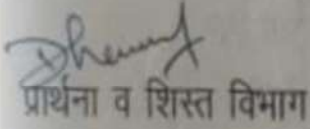 प्रार्थना व शिस्त विभाग